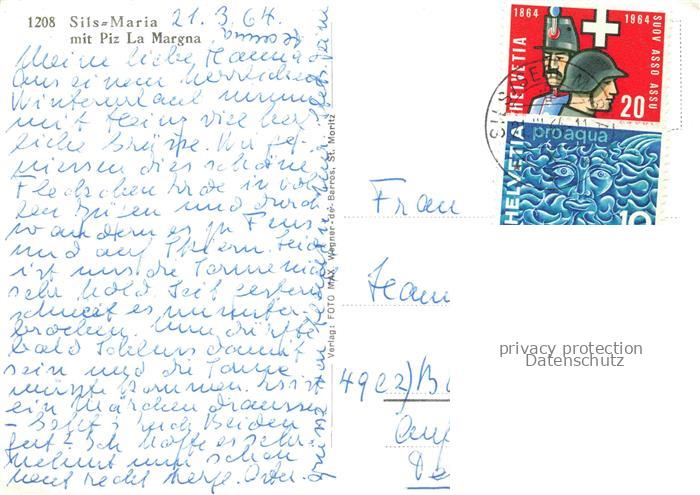 1208 Sils-Maria 21. 3. 64.
mit Piz La Margna
Meine liebe Hanna
Aus einem herrlichen
Winterland nimm
mit Heinz viel herz
liche Grüsse. Wir ge-
niessen dies schöne
Fleckchen Erde in vol
len Zügen und durch
wandern es zu Fuss
und auf Skiern. Leider
ist uns die Sonne nicht
sehr hold. Seit gestern
schneit es ununter-
brochen. Nun dürfte
bald Schluss damit
sein und die Sonne
müsste kommen. Es ist
ein Märchen draussen
- Geht's Euch Beiden
gut? Ich hoffe es sehr
nehmt nun schon
heut recht herzl. Oster
Verlag: FOTO MAX, Wagner-de-Barros, St. Moritz
1864 1964
HELVETIA
SUOV ASSO ASSU
20
HELVETIA
pro aqua
10
SILS
Frau
Hann
4902) B
privacy protection
Datenschutz